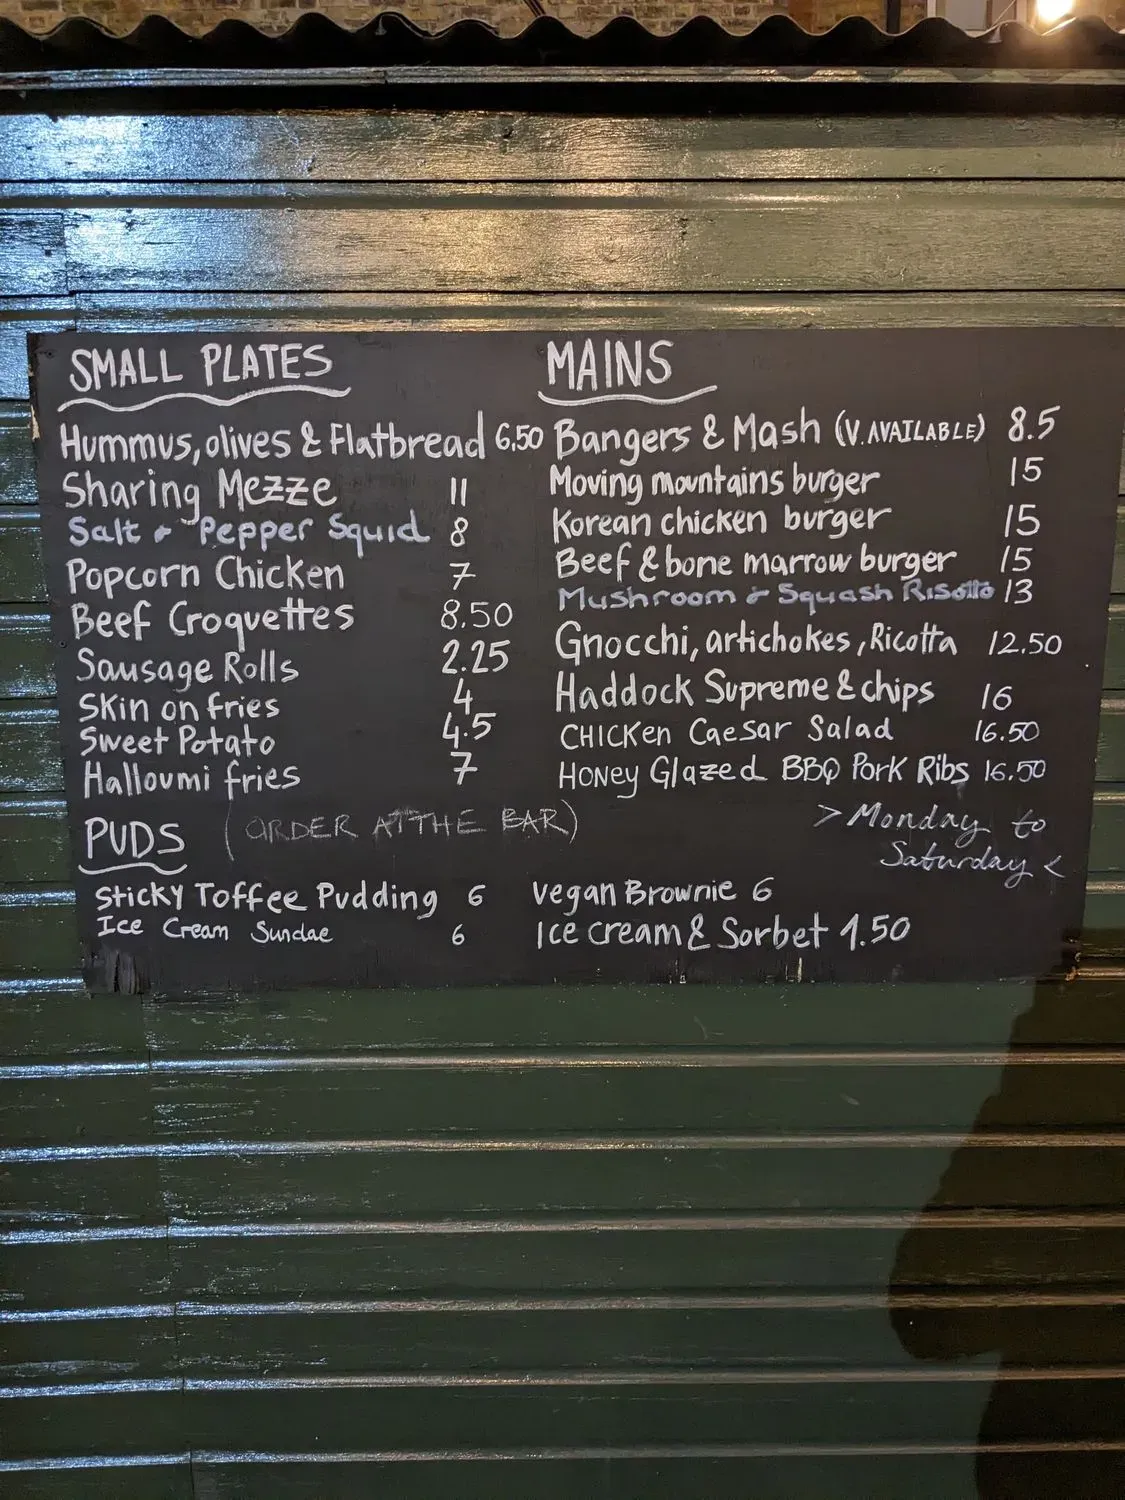 SMALL PLATES
Hummus, olives & Flatbread 6.50
Sharing Mezze 11
Salt & Pepper Squid 8
Popcorn Chicken 7
Beef Croquettes 8.50
Sausage Rolls 2.25
Skin on fries 4
Sweet Potato 4.5
Halloumi fries 7
MAINS
Bangers & Mash (V. AVAILABLE) 8.5
Moving mountains burger 15
Korean chicken burger 15
Beef & bone marrow burger 15
Mushroom & Squash Risotto 13
Gnocchi, artichokes, Ricotta 12.50
Haddock Supreme & chips 16
CHICKen Caesar Salad 16.50
Honey Glazed BBQ Pork Ribs 16.50
> Monday to
Saturday <
PUDS (ORDER AT THE BAR)
Sticky Toffee Pudding 6
Ice Cream Sundae 6
Vegan Brownie 6
Ice cream & Sorbet 1.50